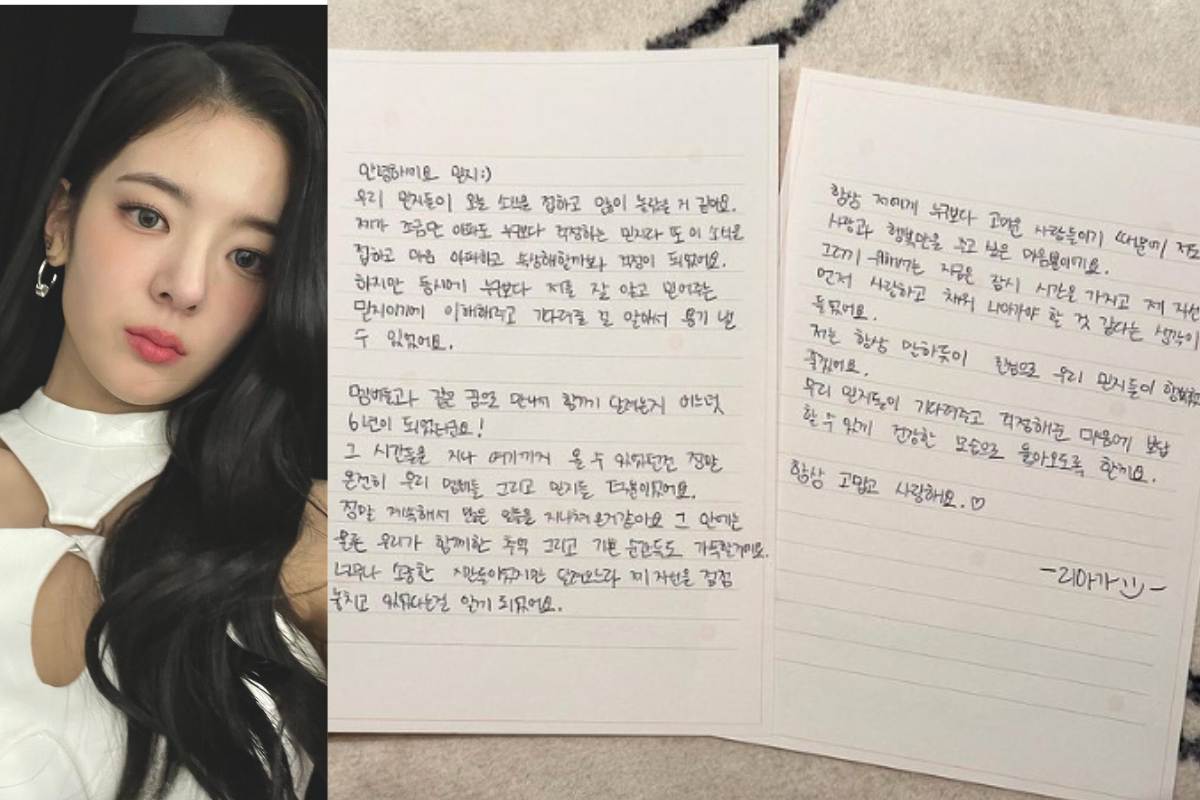 안녕하세요 믿지:)
우리 믿지들이 오늘 소식을 접하고 많이 놀랐을 거 같아요.
제가 조금만 아파도 누구보다 걱정하는 믿지라 또 이 소식을
접하고 마음 아파하고 속상해할까봐 걱정이 되었어요.
하지만 동시에 누구보다 저를 잘 알고 믿어주는
믿지이기에 이해해주고 기다려줄 걸 알아서 용기 낼
수 있었어요.
멤버들과 같은 꿈으로 만나서 함께 달려온지 어느덧
6년이 되었더라구요!
그 시간들을 지나 여기까지 올 수 있었던건 정말
온전히 우리 멤버들 그리고 믿지들 덕분이었어요.
정말 계속해서 많은 일들을 지나쳐 온거같아요 그 안에는
물론 우리가 함께한 추억 그리고 기쁜 순간들도 가득할거에요.
너무나 소중한 시간들이었지만 달려오느라 제 자신을 점점
놓치고 있었다는걸 알게 되었어요.
항상 저에게 누구보다 고마운 사람들이기 때문에 저도
사랑과 행복만을 주고 싶은 마음뿐이에요.
그러기 위해서는 지금은 잠시 시간을 가지고 제 자신을
먼저 사랑하고 채워 나아가야 할 것 같다는 생각이
들었어요.
저는 항상 말하듯이 진심으로 우리 믿지들이 행복했으면
좋겠어요.
우리 믿지들이 기다려주고 걱정해준 마음에 보답
할 수 있게 건강한 모습으로 돌아오도록 할게요.
항상 고맙고 사랑해요.♡
-리아가-